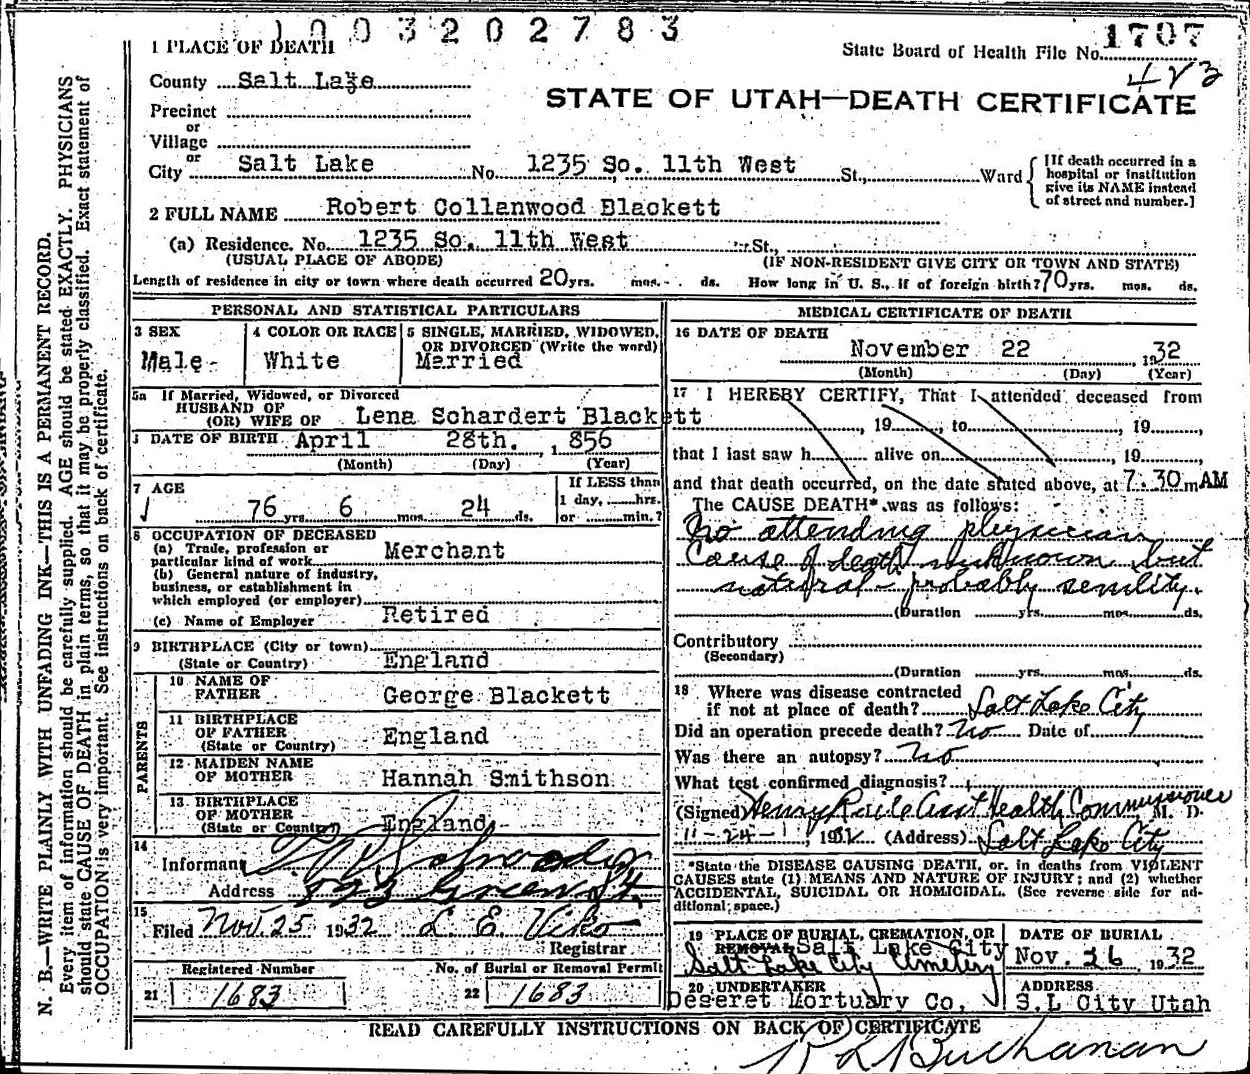 1003202783
1 PLACE OF DEATH
State Board of Health File No. 1707
County Salt Laze
423
STATE OF UTAH—DEATH CERTIFICATE
Precinct
or
Village
or
City Salt Lake No. 1235 So. 11th West St., Ward
[If death occurred in a
hospital or institution
give its NAME instead
of street and number.]
2 FULL NAME Robert Collanwood Blackett
(a) Residence. No. 1235 So. 11th West St.,
(USUAL PLACE OF ABODE) (IF NON-RESIDENT GIVE CITY OR TOWN AND STATE)
Length of residence in city or town where death occurred 20 yrs. mos. ds. How long in U. S., if of foreign birth? 70 yrs. mos. ds.
PERSONAL AND STATISTICAL PARTICULARS
3 SEX
Male
4 COLOR OR RACE
White
5 SINGLE, MARRIED, WIDOWED,
OR DIVORCED (Write the word)
Married
5a If Married, Widowed, or Divorced
HUSBAND OF
(OR) WIFE OF Lena Schardert Blackett
DATE OF BIRTH April 28th. , 1856
(Month) (Day) (Year)
7 AGE
76 yrs. 6 mos. 24 ds.
If LESS than
1 day, hrs.
or min.?
8 OCCUPATION OF DECEASED
(a) Trade, profession or
particular kind of work Merchant
(b) General nature of industry,
business, or establishment in
which employed (or employer)
(c) Name of Employer Retired
9 BIRTHPLACE (City or town)
(State or Country) England
PARENTS
10 NAME OF
FATHER George Blackett
11 BIRTHPLACE
OF FATHER
(State or Country) England
12 MAIDEN NAME
OF MOTHER Hannah Smithson
13 BIRTHPLACE
OF MOTHER
(State or Country) England
14
Informant
Address
15
Filed Nov. 25 1932 L E Viko
Registrar
Registered Number
21 1683
No. of Burial or Removal Permit
22 1683
MEDICAL CERTIFICATE OF DEATH
16 DATE OF DEATH
November 22 , 1932
(Month) (Day) (Year)
17 I HEREBY CERTIFY, That I attended deceased from
, 19 , to , 19 ,
that I last saw h alive on , 19
and that death occurred, on the date stated above, at 7.30 m AM
The CAUSE DEATH* was as follows:
No attending physician
Cause of death unknown but
natural - probably senility.
(Duration yrs. mos. ds.
Contributory
(Secondary)
(Duration yrs. mos. ds.
18 Where was disease contracted
if not at place of death? Salt Lake City
Did an operation precede death? No Date of
Was there an autopsy? No
What test confirmed diagnosis?
(Signed) Henry Asst Health Commissioner M. D.
11-24- 1932 (Address) Salt Lake City
*State the DISEASE CAUSING DEATH, or, in deaths from VIOLENT
CAUSES state (1) MEANS AND NATURE OF INJURY; and (2) whether
ACCIDENTAL, SUICIDAL OR HOMICIDAL. (See reverse side for ad-
ditional space.)
19 PLACE OF BURIAL, CREMATION, OR
REMOVAL Salt Lake City
Salt Lake City Cemetery
DATE OF BURIAL
Nov. 26 1932
20 UNDERTAKER
Deseret Mortuary Co,
ADDRESS
S.L City Utah
READ CAREFULLY INSTRUCTIONS ON BACK OF CERTIFICATE
R L Buchanan
N. B.—WRITE PLAINLY WITH UNFADING INK—THIS IS A PERMANENT RECORD.
Every item of information should be carefully supplied. AGE should be stated EXACTLY. PHYSICIANS
should state CAUSE OF DEATH in plain terms, so that it may be properly classified. Exact statement of
OCCUPATION is very important. See instructions on back of certificate.